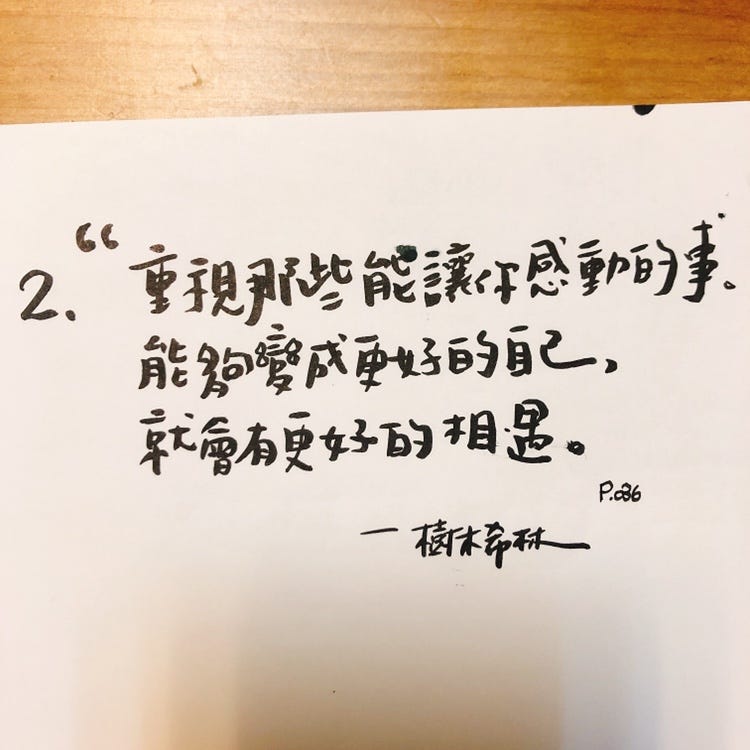 2.“重視那些能讓你感動的事。
能夠變成更好的自己,
就會有更好的相遇。
P.036
— 樹木希林